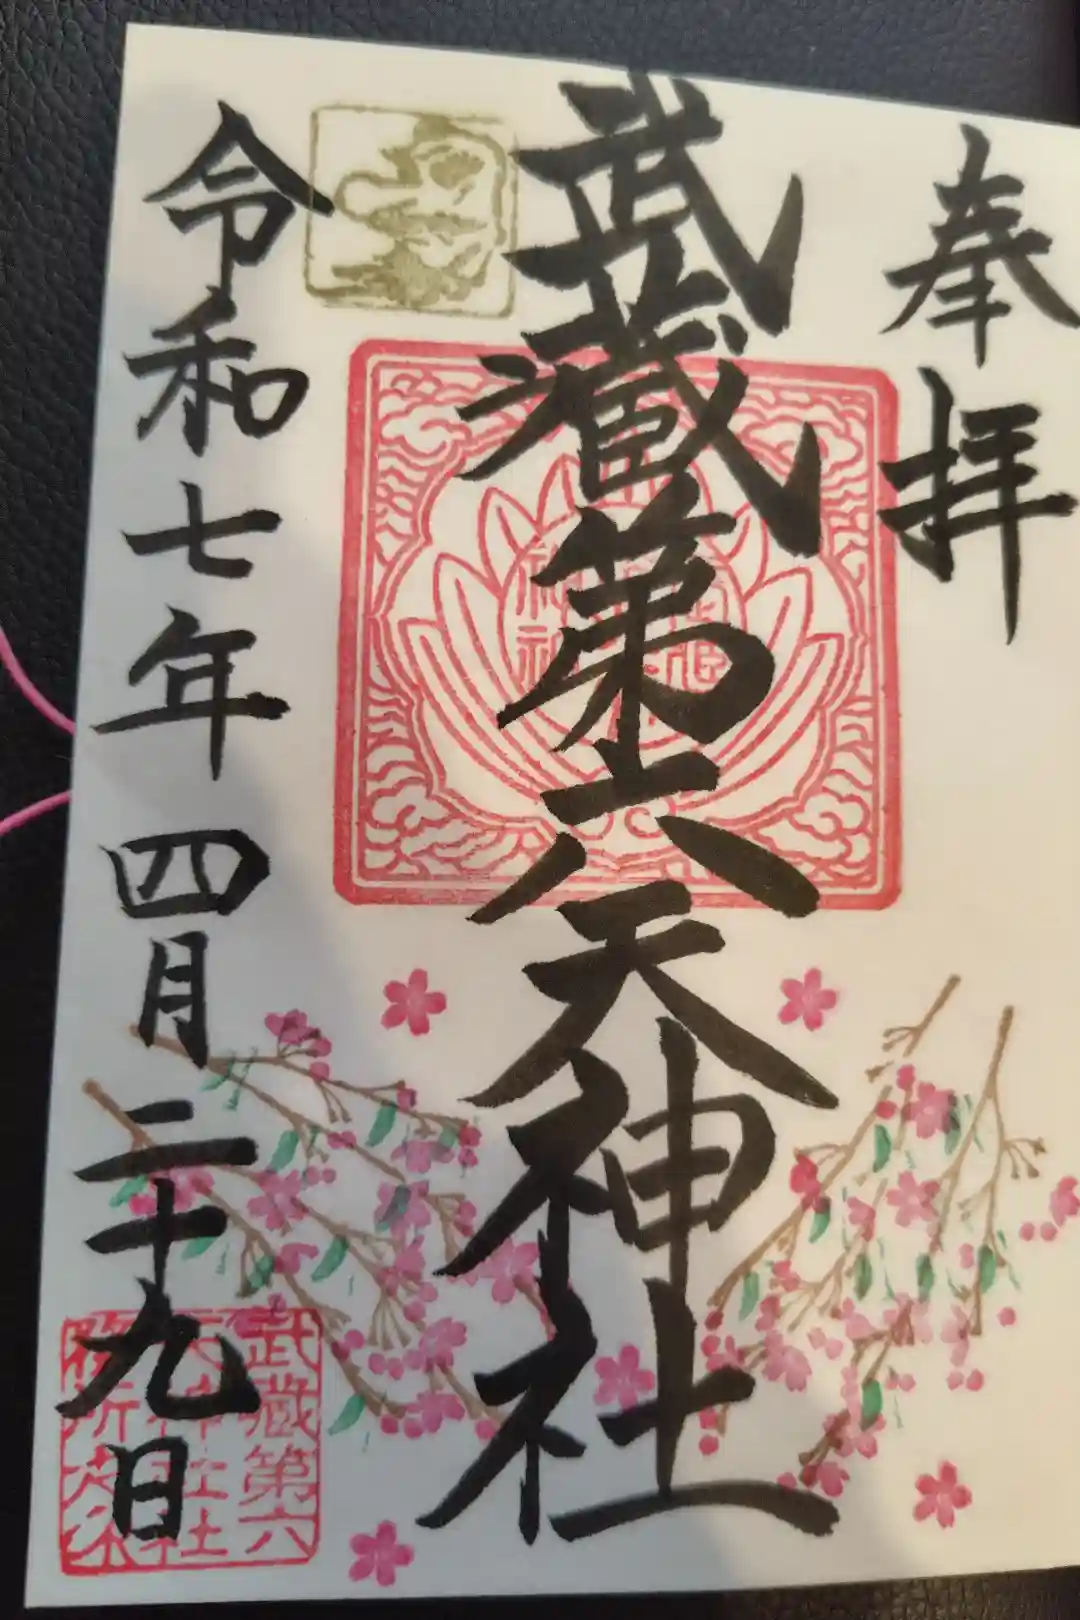 奉拝
武蔵第六天神社
令和七年四月二十九日
武蔵第六
天神社社
務所之印